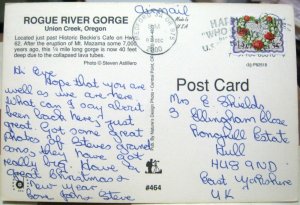 ROGUE RIVER GORGE
Union Creek, Oregon
Located just past Historic Beckie's Cafe on Hwy.
62. After the eruption of Mt. Mazama some 7,000
years ago, this ¼ mile long gorge is now 40 feet
deep due to the collapsed lava tubes.
Photo © Steven Astillero
Airmail
Made in
USA
Post Card
Hi
Hope that you are
well as we are here
what can I say about
been just
great. Got some great
photos of Steves grand
sons they have got
really big. Have a
great Christmas &
New Year
Love John & Steve
#464
Mrs E Shields
9 Ellingham Close
Ronghill Estate
Hull
HU8 9ND
East Yorkshire
UK